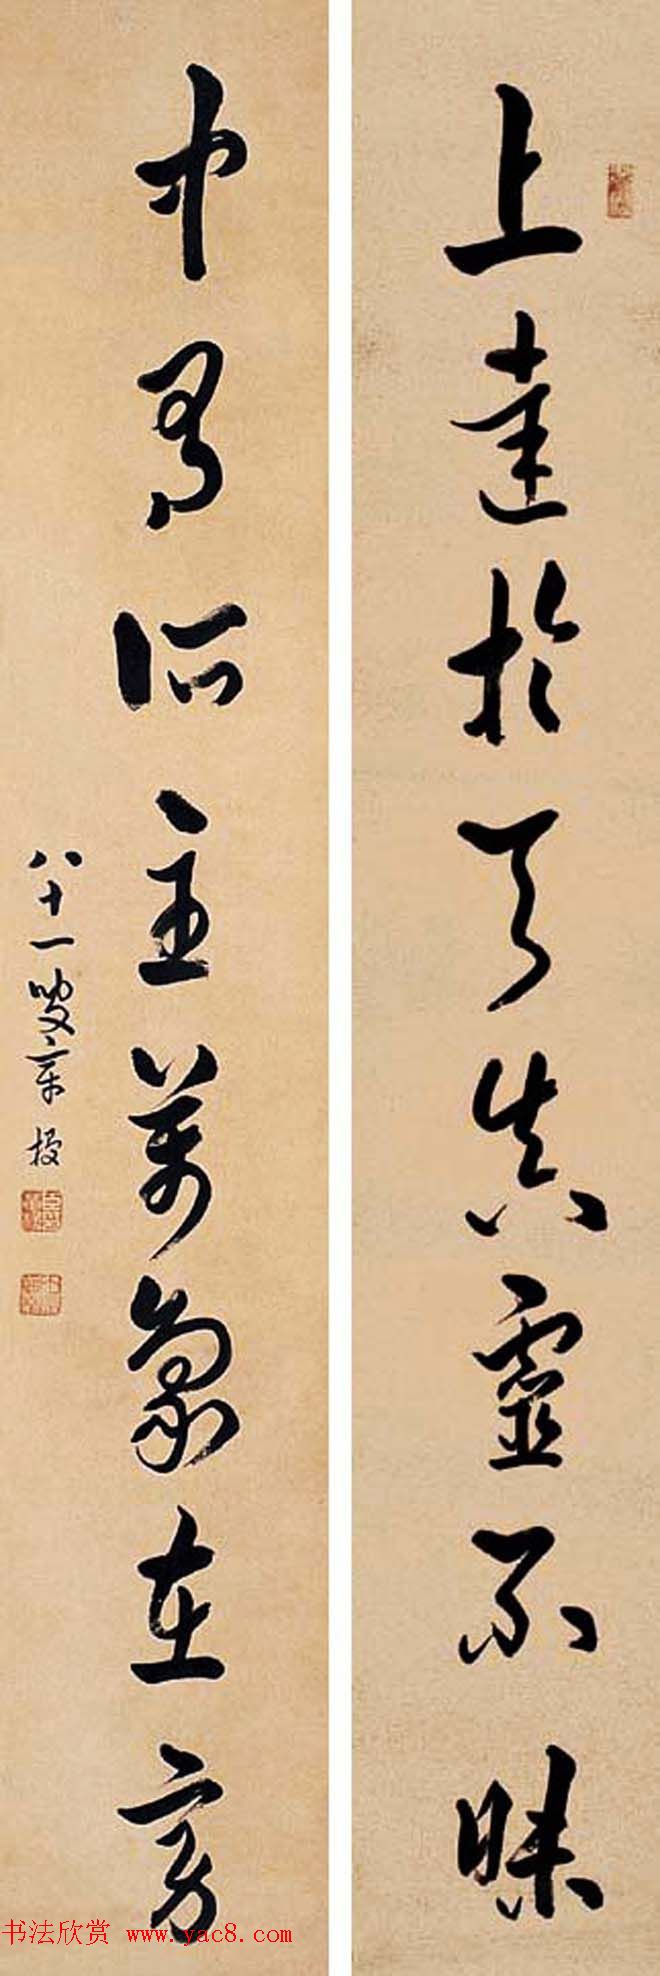 上達於天真靈不昧
中有所主萬象在旁
八十一叟章梫
书法欣赏 www.yac8.com